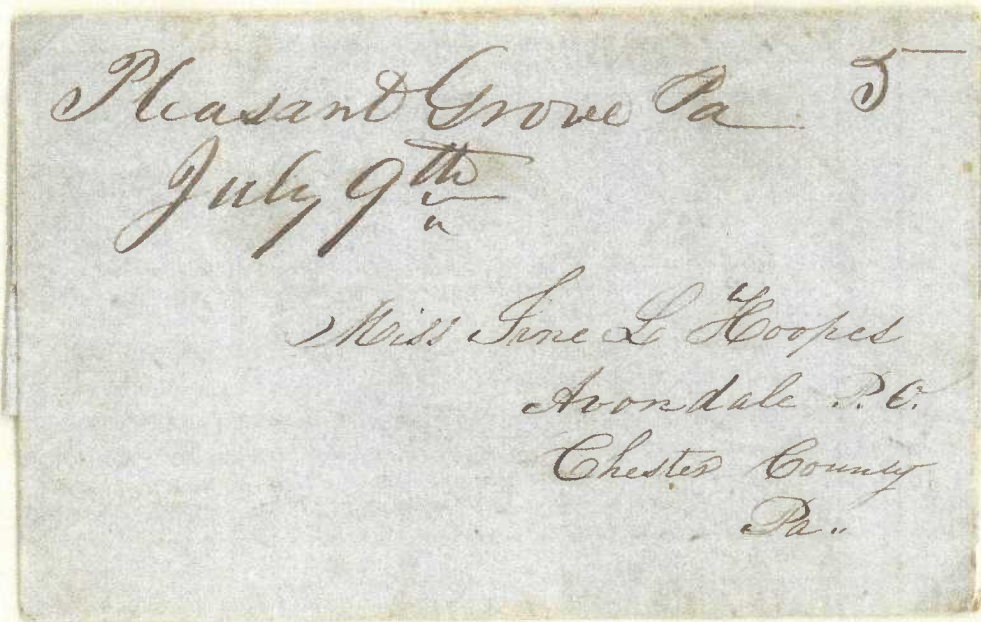 Pleasant Grove Pa 5
July 9th
Miss Irne L Hoopes
Avondale P.O.
Chester County
Pa..